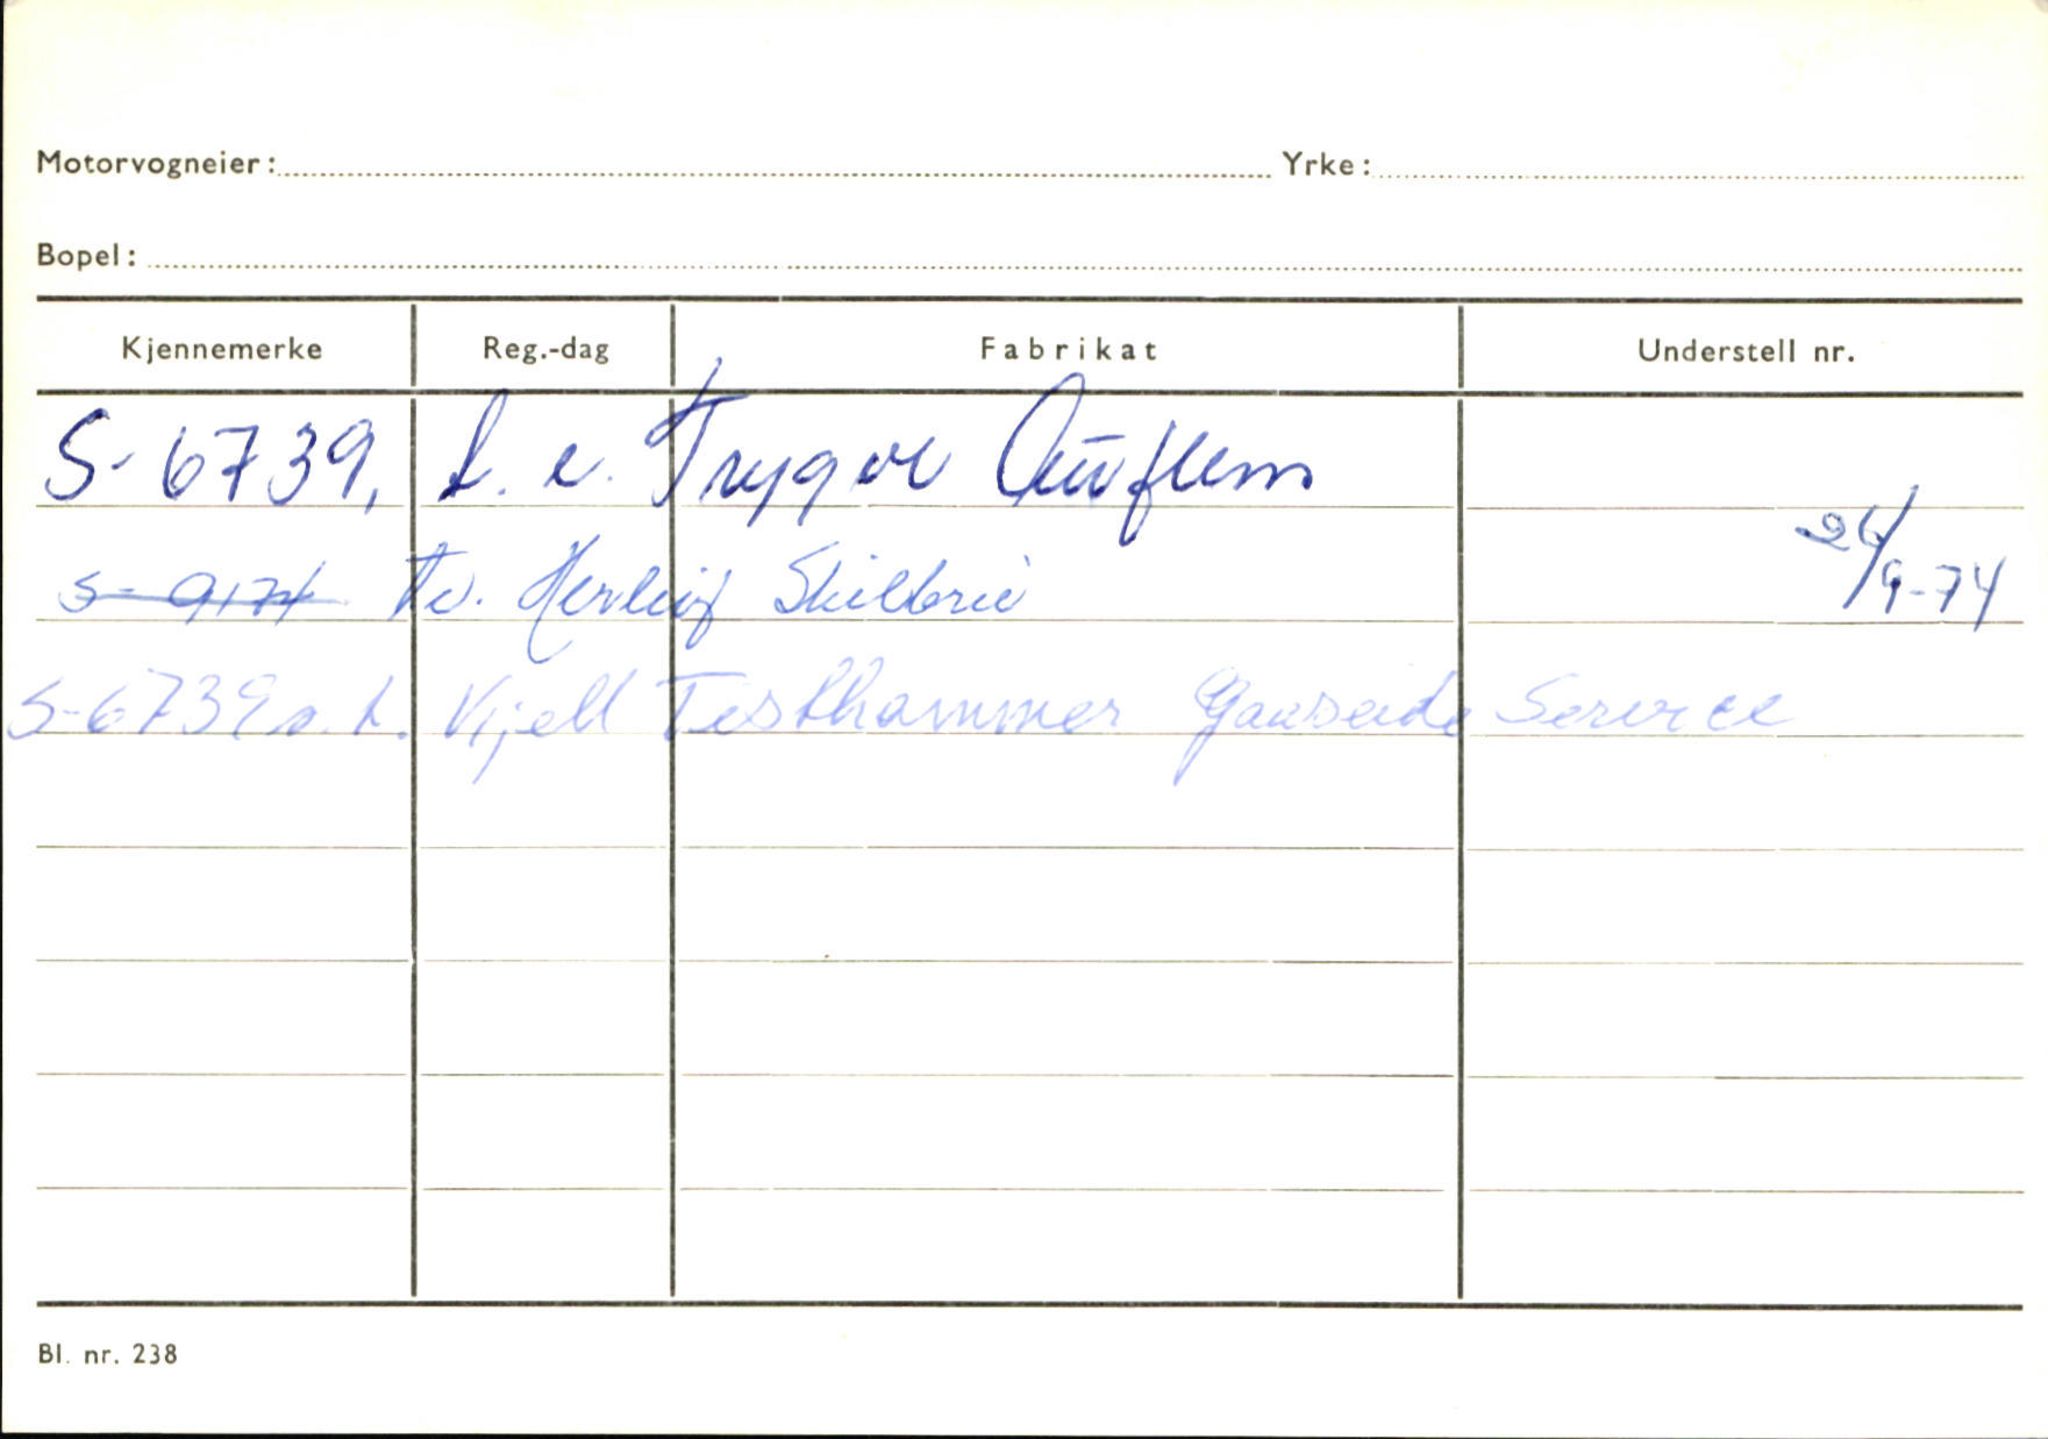 Motorvogneier: Yrke:
Bopel:
Kjennemerke Reg.-dag Fabrikat Understell nr.
S-6739, t.e. Trygve Auflem
26/9-74
S-9174 tv. Herleif Skilbrei
S-6739 n.t. Kjell Festhammer Service
Bl. nr. 238